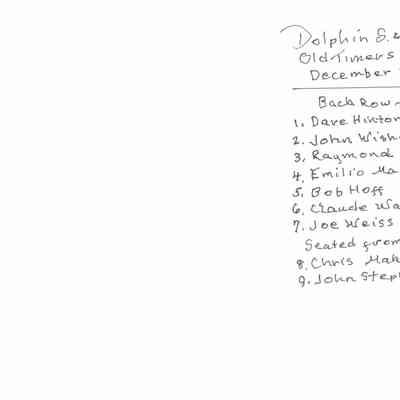 Dolphin S.
Old Timers
December
Back Row
1. Dave Hinton
2. John Wish
3. Raymond
4. Emilio Ma
5. Bob Hoff
6. Claude Wa
7. Joe Weiss
Seated from
8. Chris Mak
9. John Step